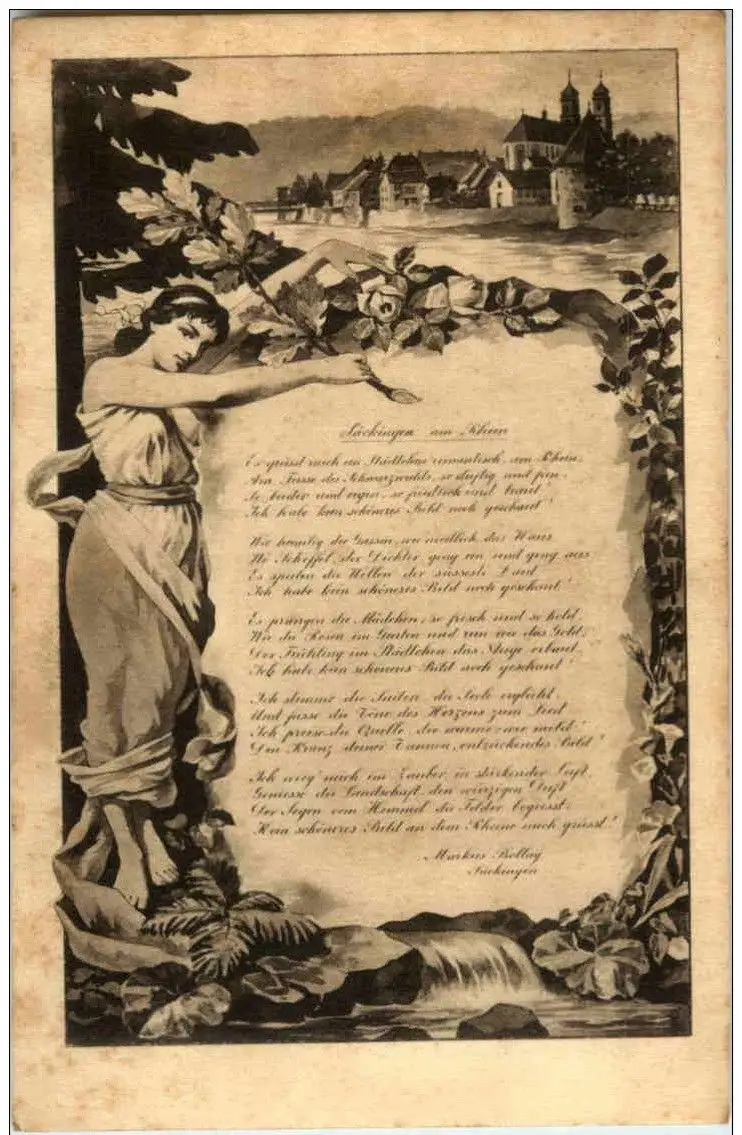 Säckingen am Rhein
Es grüsst mich ein Städtchen romantisch, am Rhein,
Am Fusse des Schwarzwalds, so duftig und fein.
So bieder und eigen, so friedlich und
Ich habe kein schöneres Bild noch geschaut!
Wie die Gassen, wie niedlich das Haus
Wo Scheffel, der Dichter ging ein und ging aus
Es spielen die Wellen der
Ich habe kein schöneres Bild noch geschaut!
Es prangen die Mädchen, so frisch und so hold,
Wie die Rosen im Garten und rein wie das Gold,
Der Frühling im Städtchen das Auge erbaut,
Ich habe kein schöneres Bild noch geschaut!
Ich stimme die Saiten, die Seele erglüht,
Und fasse die Töne des Herzens zum Lied
Ich preise die Quelle, die warme wie mild!
Den Kranz deiner Tannen, entzückendes Bild!
Ich wieg' mich im Zauber, in stärkender Luft,
Geniesse der Landschaft, den würzigen Duft
Der Segen vom Himmel die Felder begiesst.
Kein schöneres Bild an dem Rheine mich grüsst!
Markus Bollag
Säckingen